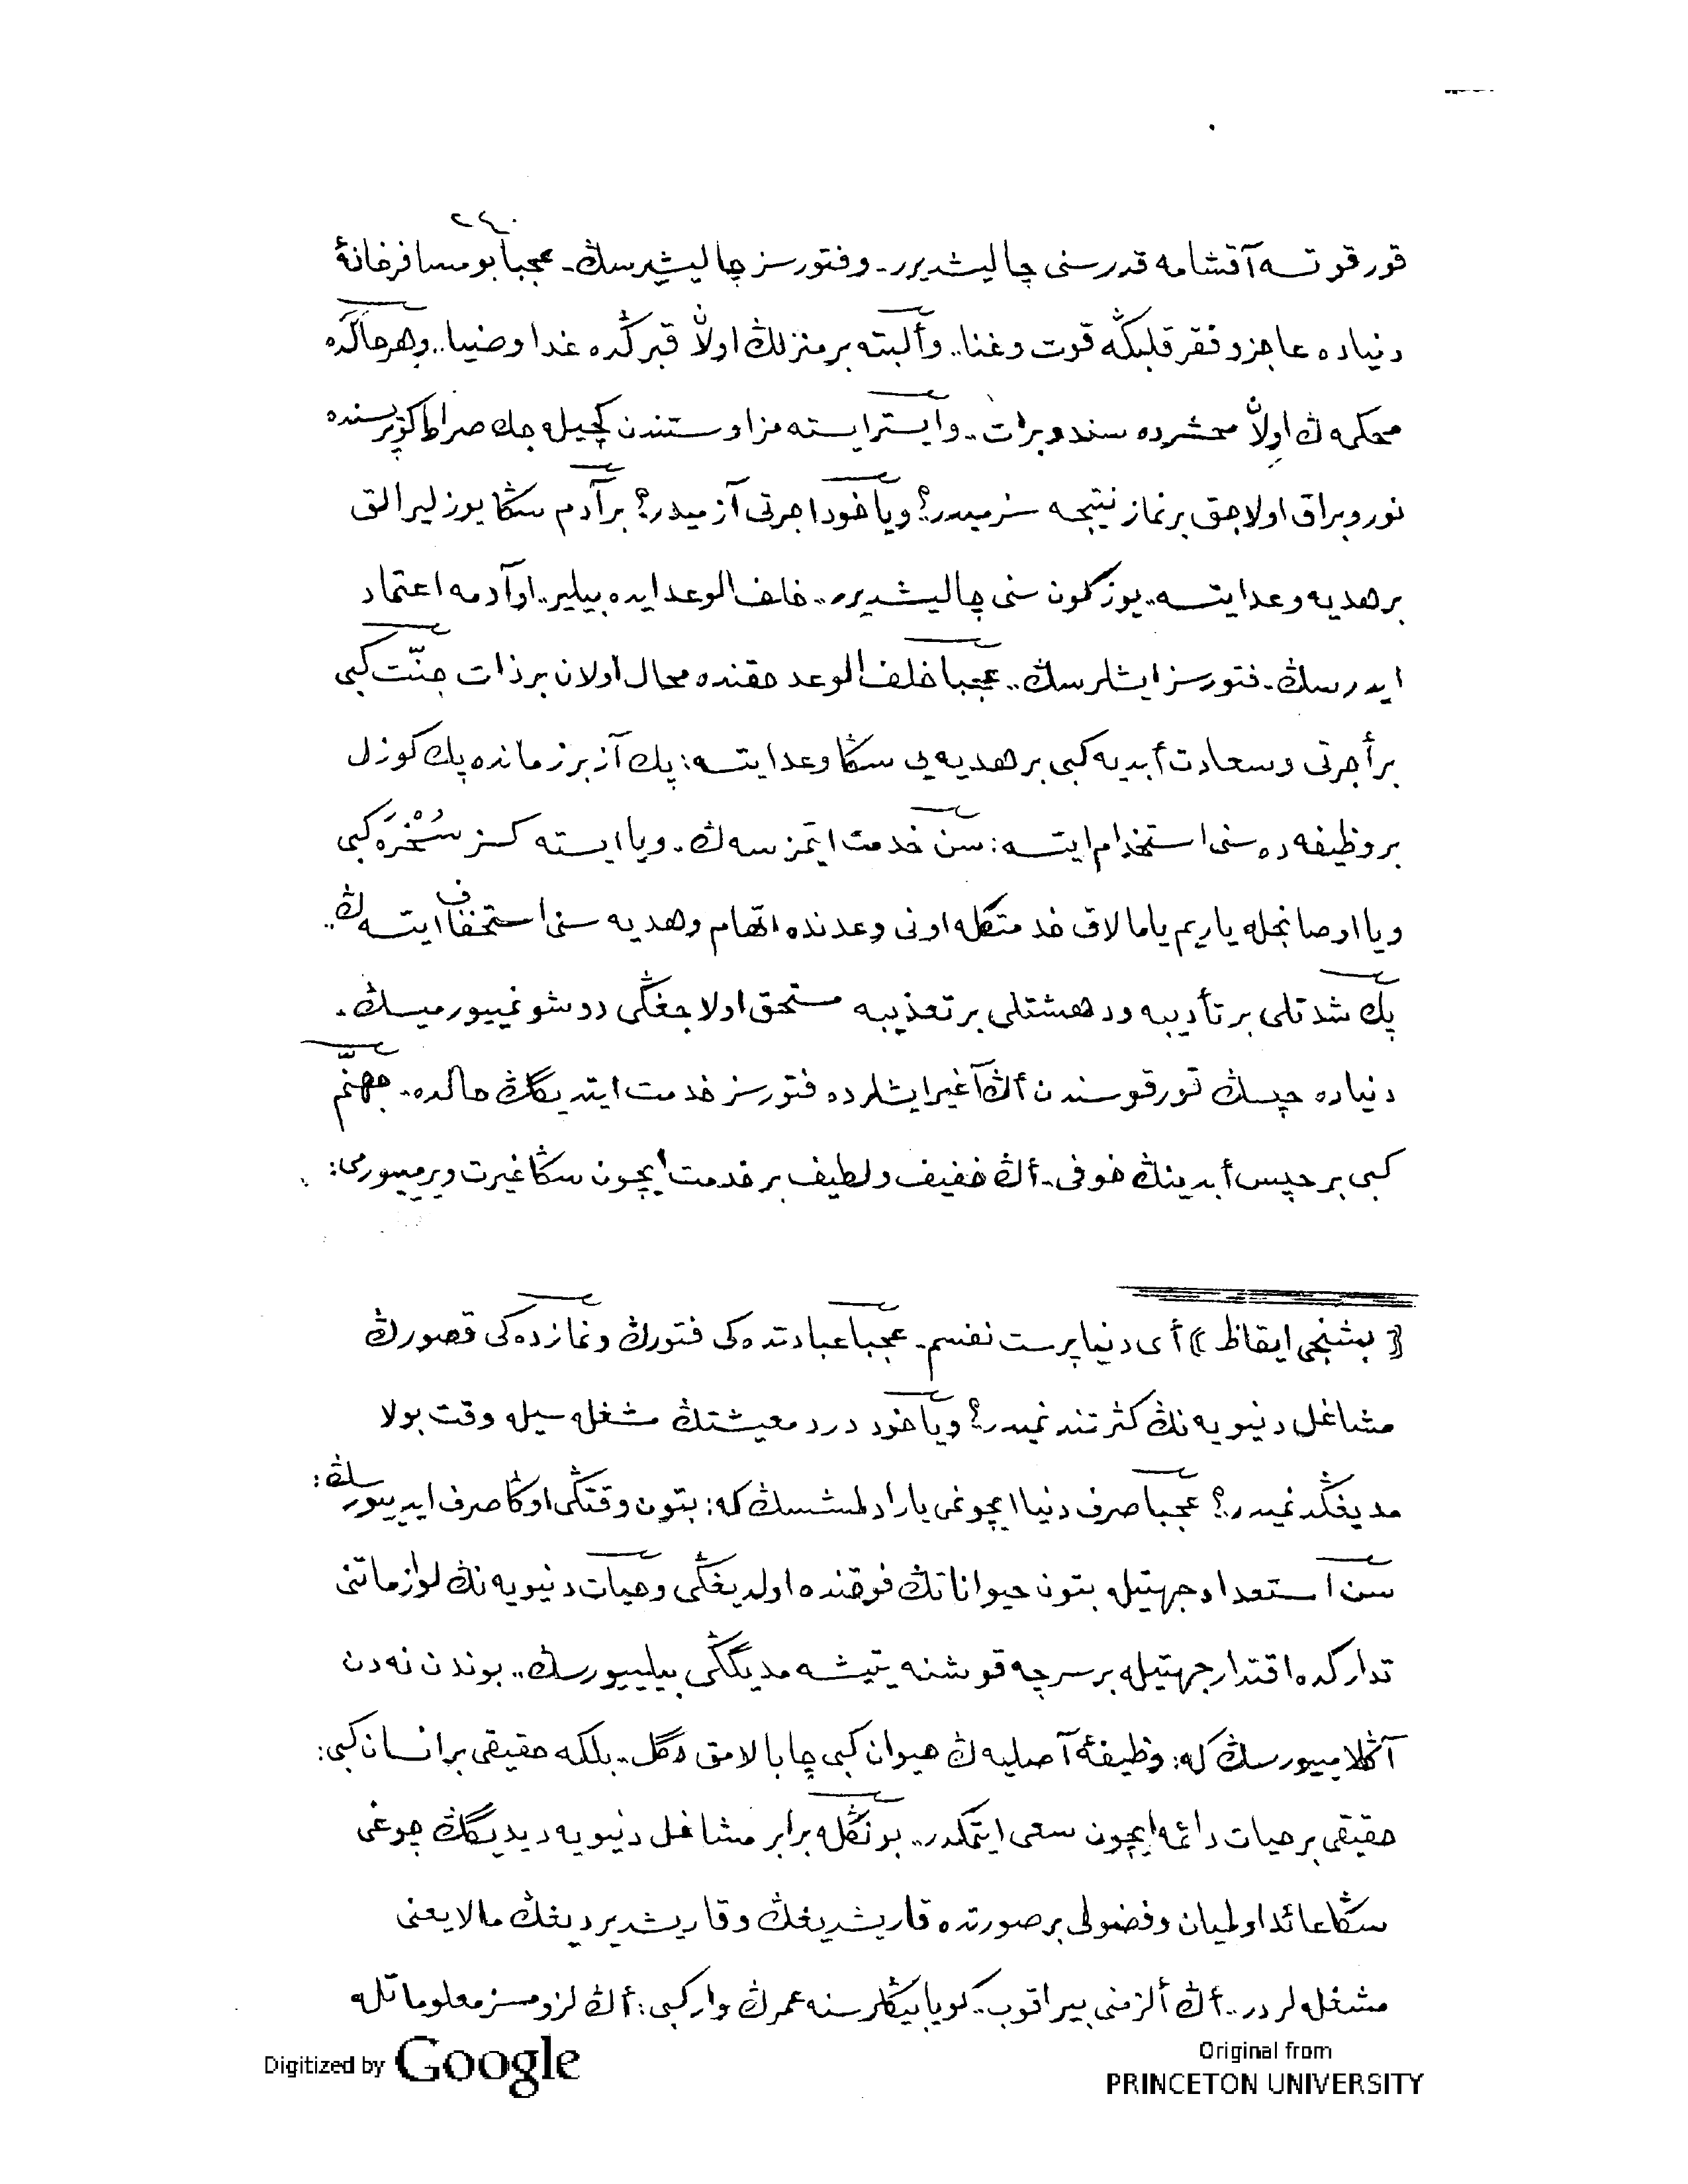 ٢٤٠
قورقوتسه آقشامه قدر سنى چاليشديرر. وفتورسز چاليشيرسڭ. عجبا بو مسافرخانۀ
دنياده عاجز و فقر قلبڭه قوت و غنا.. وألبته بر منزلڭ اولان قبرڭده غدا و ضيا.. وهر حالده
محكمه‌ڭ اولان محشرده سند و برات.. وايستر ايسته‌مز اوستندن كچيله‌جك صراط كوپريسنده
نور و براق اولاجق بر نماز نتيجه سزميدر؟ وياخود اجرتى آزميدر؟ بر آدم سڭا يوز ليرالق
بر هديه وعد ايتسه.. يوز كون سنى چاليشديرر.. خلف الوعد ايده بيلير.. او آدمه اعتماد
ايدرسڭ. فتورسز ايشلرسڭ.. عجبا خلف الوعد حقنده محال اولان بر ذات جنّت كبى
بر أجرتى و سعادت أبديه كبى بر هديه‌يى سڭا وعد ايتسه: پك آز بر زمانده پك كوزل
بر وظيفه‌ده سنى استخدام ايتسه: سن خدمت ايتمزسه‌ڭ. ويا ايسته كسز سُخْرَه كبى
ويا اوصانجله ياريم يامالاق خدمتڭله اونى وعدنده اتهام و هديه سنى استخفاف ايتسه‌ڭ..
پك شدتلى بر تأديبه و دهشتلى بر تعذيبه مستحق اولاجغڭى دوشونمييورميسڭ.
دنياده حپسڭ قورقوسندن أڭ آغير ايشلرده فتورسز خدمت ايتديگڭ حالده. جهنّم
كبى بر حپس أبدينڭ خوفى. أڭ خفيف و لطيف بر خدمت ايچون سڭا غيرت ويرميورمى:
﴿ بشنجى ايقاظ ﴾ أى دنيا پرست نفسم. عجبا عبادتده‌كى فتورڭ و نمازده‌كى قصورڭ
مشاغل دنيويه‌نڭ كثرتندنميدر؟ وياخود درد معيشتڭ مشغله سيله وقت بولا
مديغڭدنميدر؟ عجبا صرف دنيا ايچونمى يارادلمشسڭ كه: بتون وقتڭى اوڭا صرف ايدييورسڭ:
سن استعداد جهتيله بتون حيواناتڭ فوقنده اولديغڭى و حيات دنيويه‌نڭ لوازماتنى
تداركده اقتدار جهتيله بر سرچه قوشنه يتيشه‌مديگڭى بيلييورسڭ.. بوندن نه‌دن
آڭلامييورسڭ كه: وظيفۀ آصليه‌ڭ حيوان كبى چابالامق دگل.. بلكه حقيقى بر انسان كبى:
حقيقى بر حيات دائمه ايچون سعى ايتمكدر.. بونڭله برابر مشاغل دنيويه ديديگڭ چوغى
سڭا عائد اولميان و فضولى بر صورتده قاريشديغڭ و قاريشديرديغڭ مالايعنى
مشغله‌لردر.. أڭ ألزمنى بيراقوب.. كويا بيڭلر سنه عمرڭ وار كبى: أڭ لزومسز معلوماتله
Digitized by Google
Original from
PRINCETON UNIVERSITY